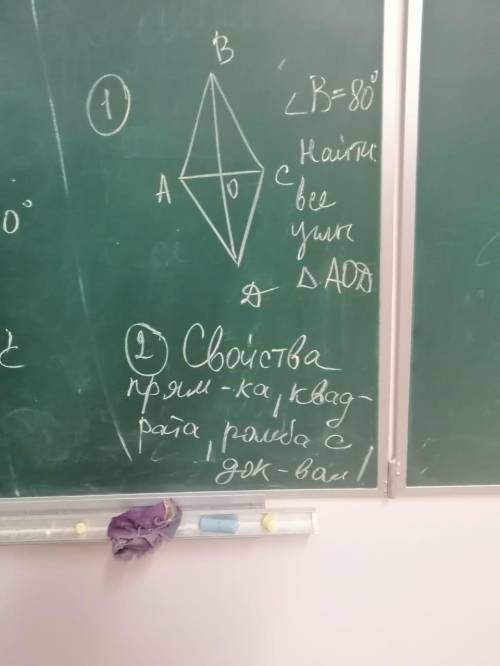 1
B
A
O
C
D
∠B=80°
Найти
все
углы
△AOD
2 Свойства
прям-ка, квад-
рата, ромба с
док-вам!
0°